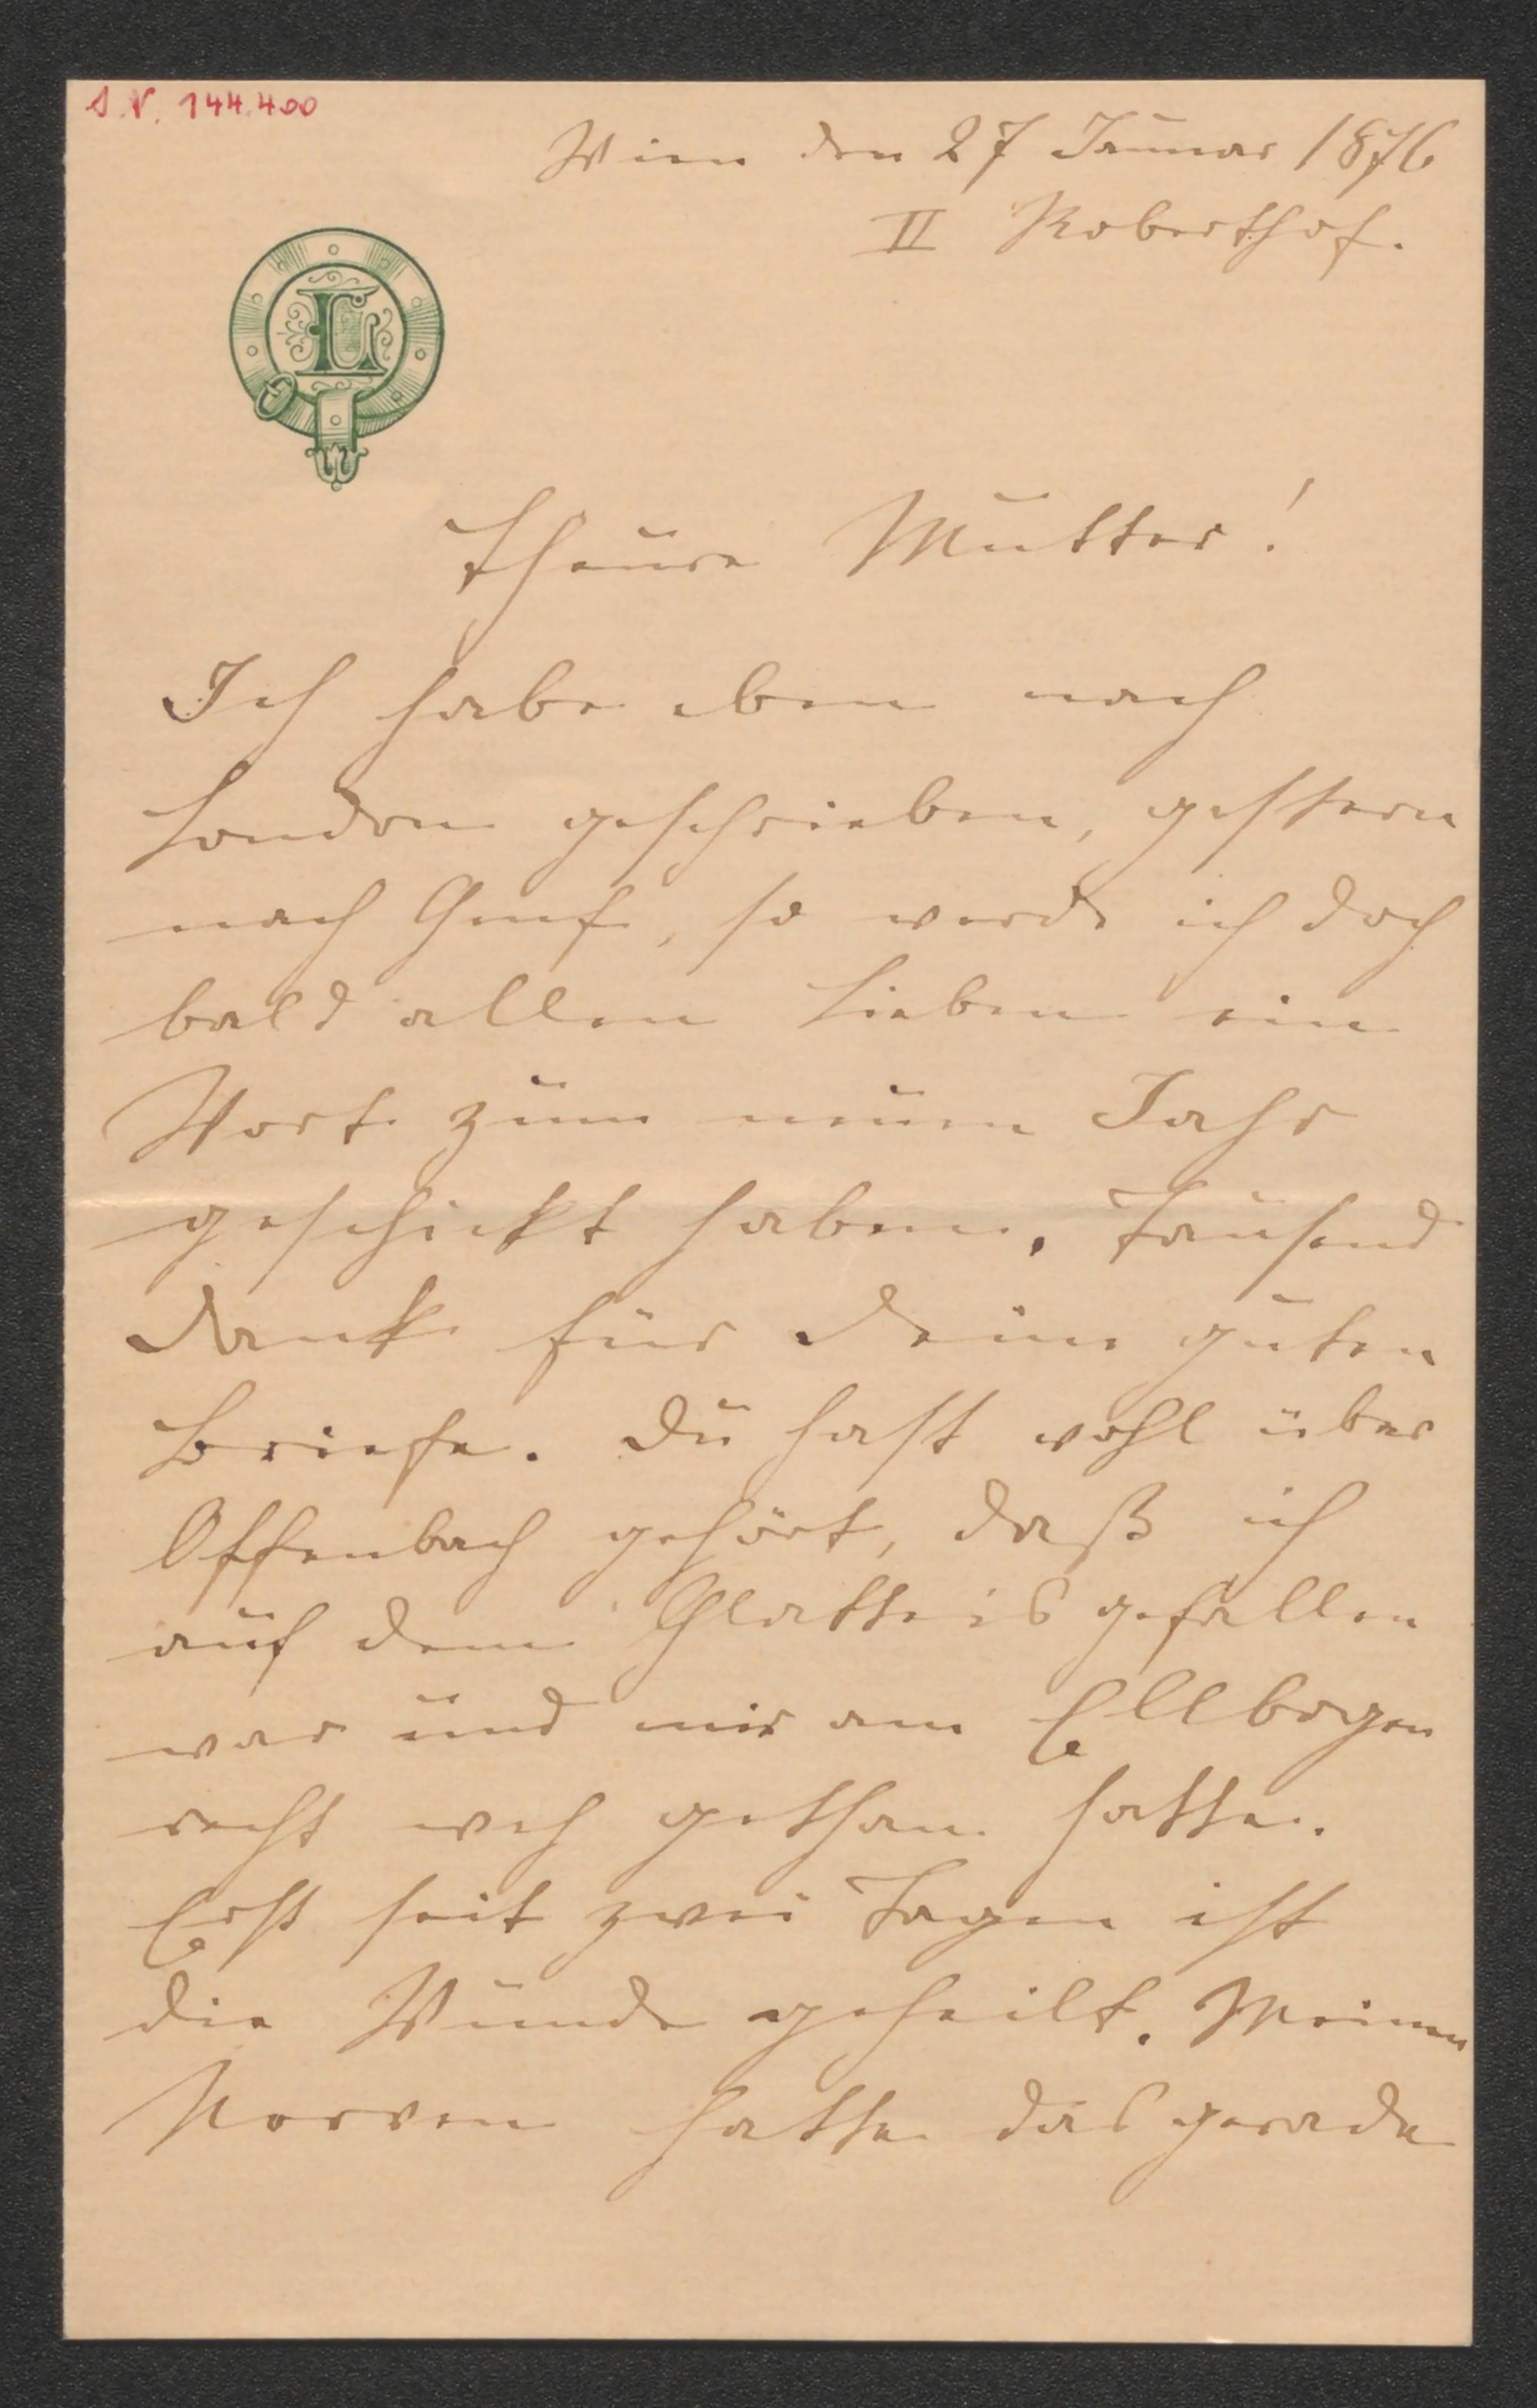 I.N. 144.400
Wien den 27 Januar 1876
II Roberthof.
L
Theure Mutter!
Ich habe eben nach
London geschrieben, gestern
nach Genf, so werde ich doch
bald allen Lieben ein
Wort zum neuen Jahr
geschickt haben. Tausend
Dank für deine guten
Briefe. Du hast wohl über
Offenbach gehört, daß ich
auf dem Glatteis gefallen
war und mir am Ellbogen
recht weh gethan hatte.
Erst seit zwei Tagen ist
die Wunde geheilt. Meinen
Nerven hatte das gerade